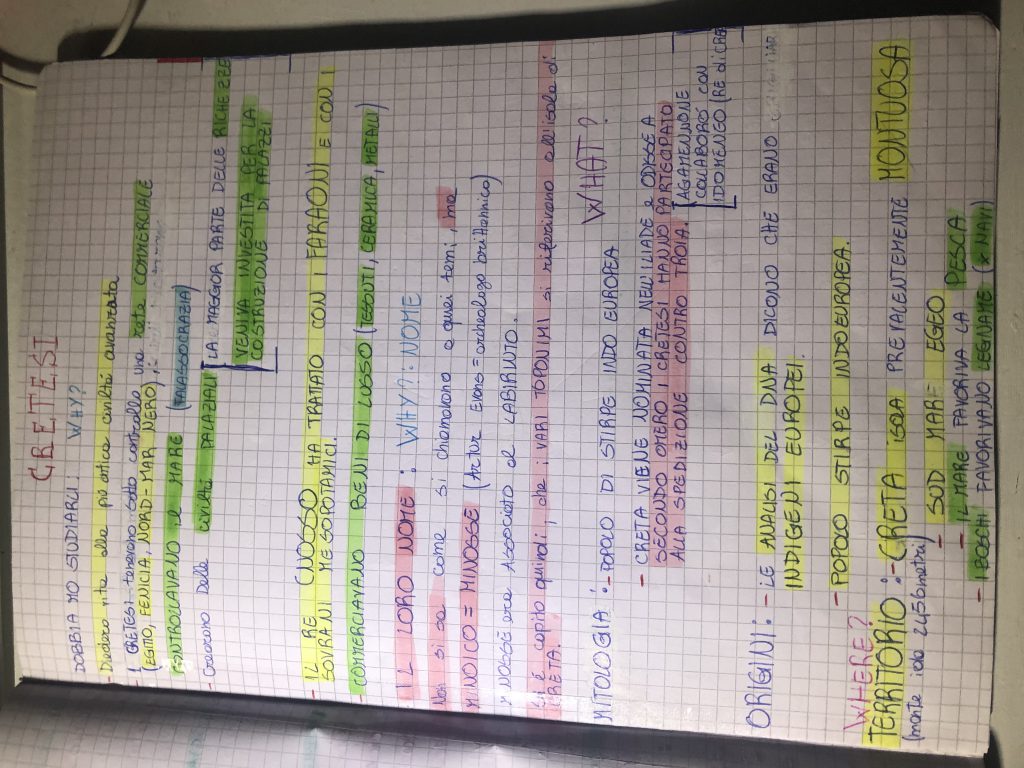 CRETESI
DOBBIAMO STUDIARLI: WHY?
- Diedero vita alla più antica civiltà avanzata
- I CRETESI tenevano sotto controllo una rete comerciale
(EGITTO, FENICIA, NORD - MAR NERO)
CONTROLLAVANO il MARE (TALASSOCRAZIA)
- Creavano delle civiltà PALAZIALI [LA MAGGIOR PARTE DELLE RICHEZZE
VENIVA INVESTITA PER LA
COSTRUZIONE DI PALAZZI
- IL RE CNOSSO HA TRATATO CON I FARAONI E CON I
SOVRANI MESOPOTAMICI.
- COMMERCIAVANO BENI DI LUSSO (TESSUTI, CERAMICA, METALI)
- IL LORO NOME: WHY?: NOME
Non si sa come si chiamavano a quei temi, ma
MINOICO = MINOSSE (Artur Evans = archeologo brithannico)
MINOSSE era ASSOCIATO al LABIRINTO.
si è capito quindi, che i VARI TOPONIMI si riferivano all'isola di
CRETA. WHAT?
MITOLOGIA: - POPOLO DI STIRPE INDO EUROPEA
- CRETA VIENE NOMINATA NELL'ILIADE e ODISSEA
SECONDO OMERO I CRETESI HANNO PARTECIPATO
ALLA SPEDIZIONE CONTRO TROIA. [AGAMENNONE
COLLABORÒ CON
IDOMENEO (RE di CRE
ORIGINI: - LE ANALISI DEL DNA DICONO CHE ERANO
INDIGENI EUROPEI.
- POPOLO STIRPE INDOEUROPEA.
WHERE?
TERRITORIO: - CRETA isola PREVALENTEMENTE MONTUOSA
(monte ida 2456metri) - SUD MARE EGEO
- IL MARE FAVORIVA LA PESCA
- I BOSCHI FAVORIVANO LEGNAME (x NAVI)